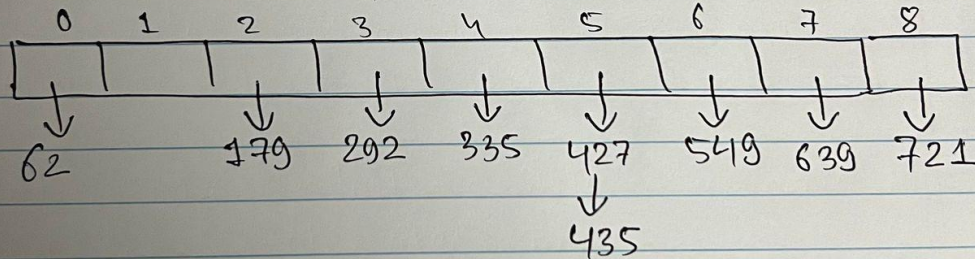 0 1 2 3 4 5 6 7 8
62 179 292 335 427 549 639 721
435